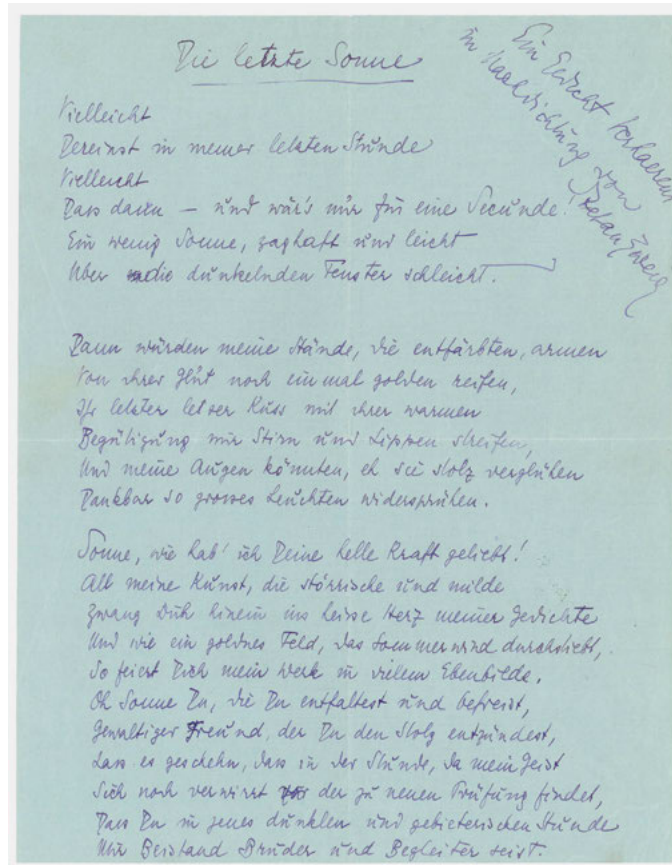 Die letzte Sonne
Ein Gedicht Verhaerens
in Nachdichtung von
Stefan Zweig
Vielleicht
Dereinst in meiner letzten Stunde
Vielleicht
Dass dann – und wär's nur für eine Secunde
Ein wenig Sonne, zaghaft und leicht
Über die dunkelnden Fenster schleicht.
Dann würden meine Hände, die entfärbten, armen
Von ihrer Glut noch einmal golden reifen,
Ihr letzter leiser Kuss mit ihrer warmen
Begütigung mir Stirn und Lippen streifen,
Und meine Augen könnten, eh sie stolz verglühen
Dankbar so grosses Leuchten widersprühen.
Sonne, wie hab' ich Deine helle Kraft geliebt!
All meine Kunst, die störrische und milde
Zwang Dich hinein ins heisse Herz meiner Gedichte
Und wie ein goldnes Feld, das Sommerwind durchstiebt,
So feiert Dich mein Werk in vielem Ebenbilde.
Oh Sonne Du, die Du entfaltest und befreist,
Gewaltiger Freund, der Du den Stolz entzündest,
Lass es geschehn, dass in der Stunde, da mein Geist
Sich noch verwirrt der zu neuen Prüfung findet,
Dass Du in jenes dunklen und gebieterischen Stunde
Mir Beistand Bruder und Begleiter seist